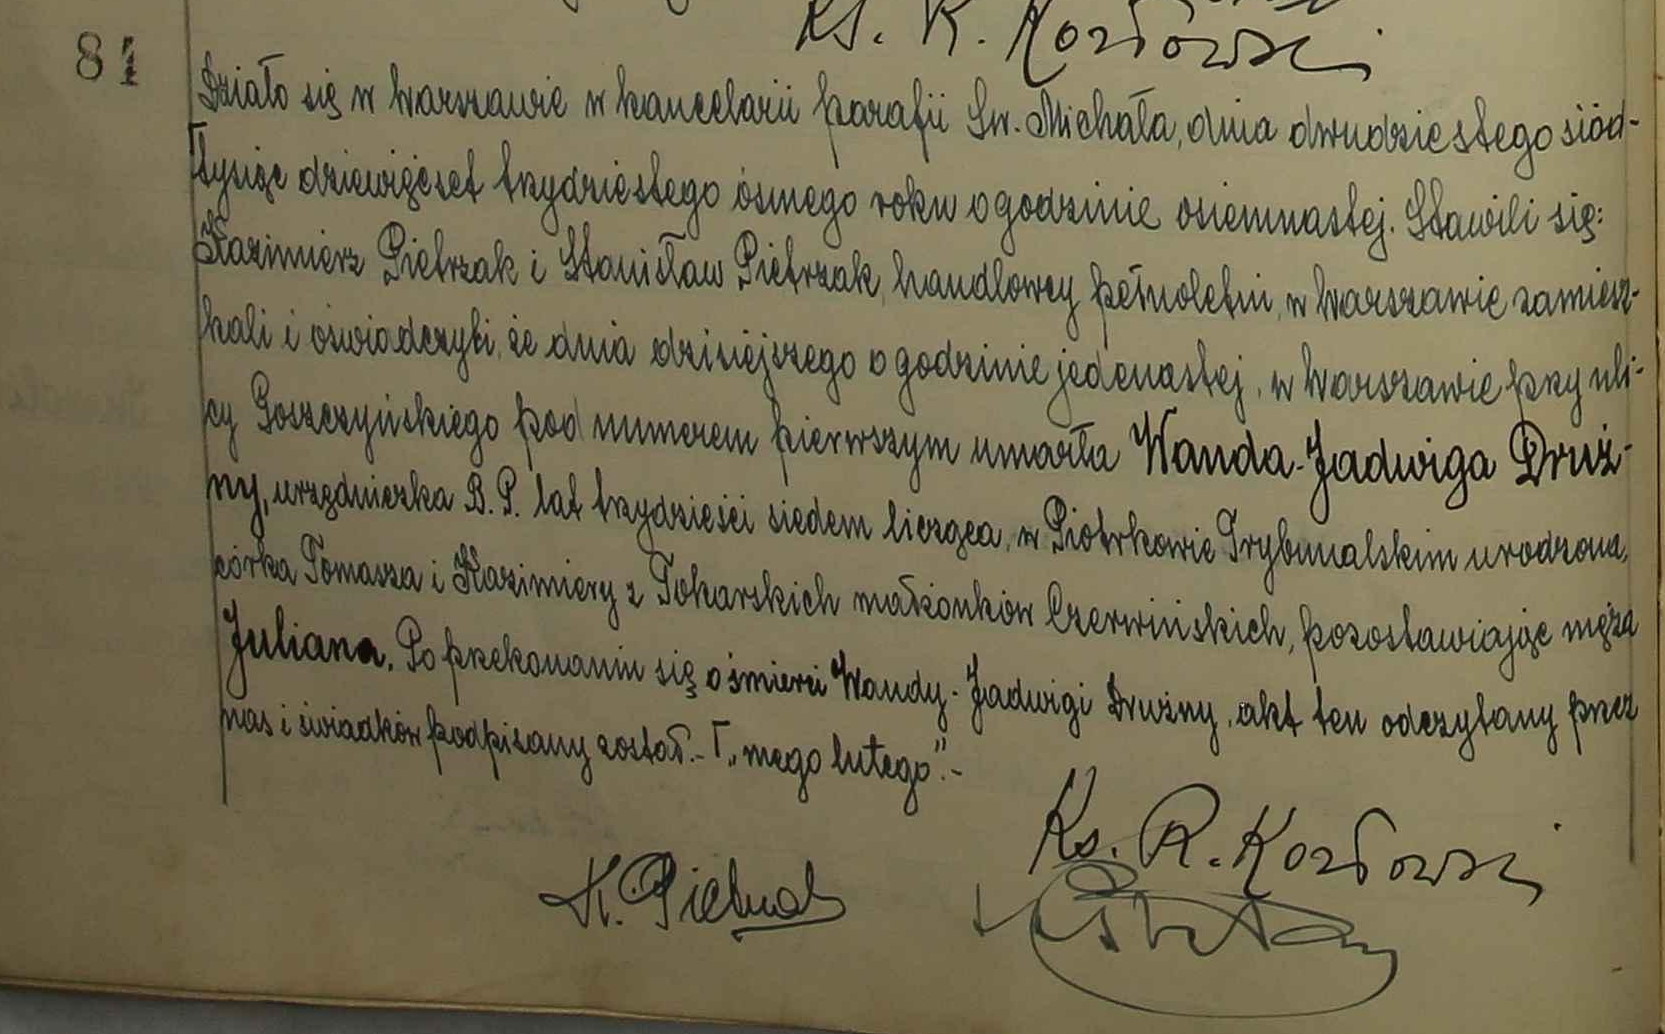 Ks. R. Kozłowski
81
Działo się w Warszawie w kancelarii parafii Św. Michała, dnia dwudziestego siód-
Γ tysiąc dziewięćset trzydziestego ósmego roku o godzinie osiemnastej. Stawili się:
Kazimierz Pietrzak i Stanisław Pietrzak, handlowcy pełnoletni, w Warszawie zamiesz-
kali i oświadczyli, że dnia dzisiejszego o godzinie jedenastej, w Warszawie przy uli-
cy Goszczyńskiego pod numerem pierwszym umarła Wanda-Jadwiga Druż-
ny, urzędniczka B. P. lat trzydzieści siedem licząca, w Piotrkowie Trybunalskim urodzona,
córka Tomasza i Kazimiery z Tokarskich małżonków Czerwińskich, pozostawiając męża
Juliana. Po przekonaniu się o śmierci Wandy-Jadwigi Drużny, akt ten odczytany przez
nas i świadków podpisany został.- Γ „mego lutego”.-
Ks. R. Kozłowski
K. Pietrzak